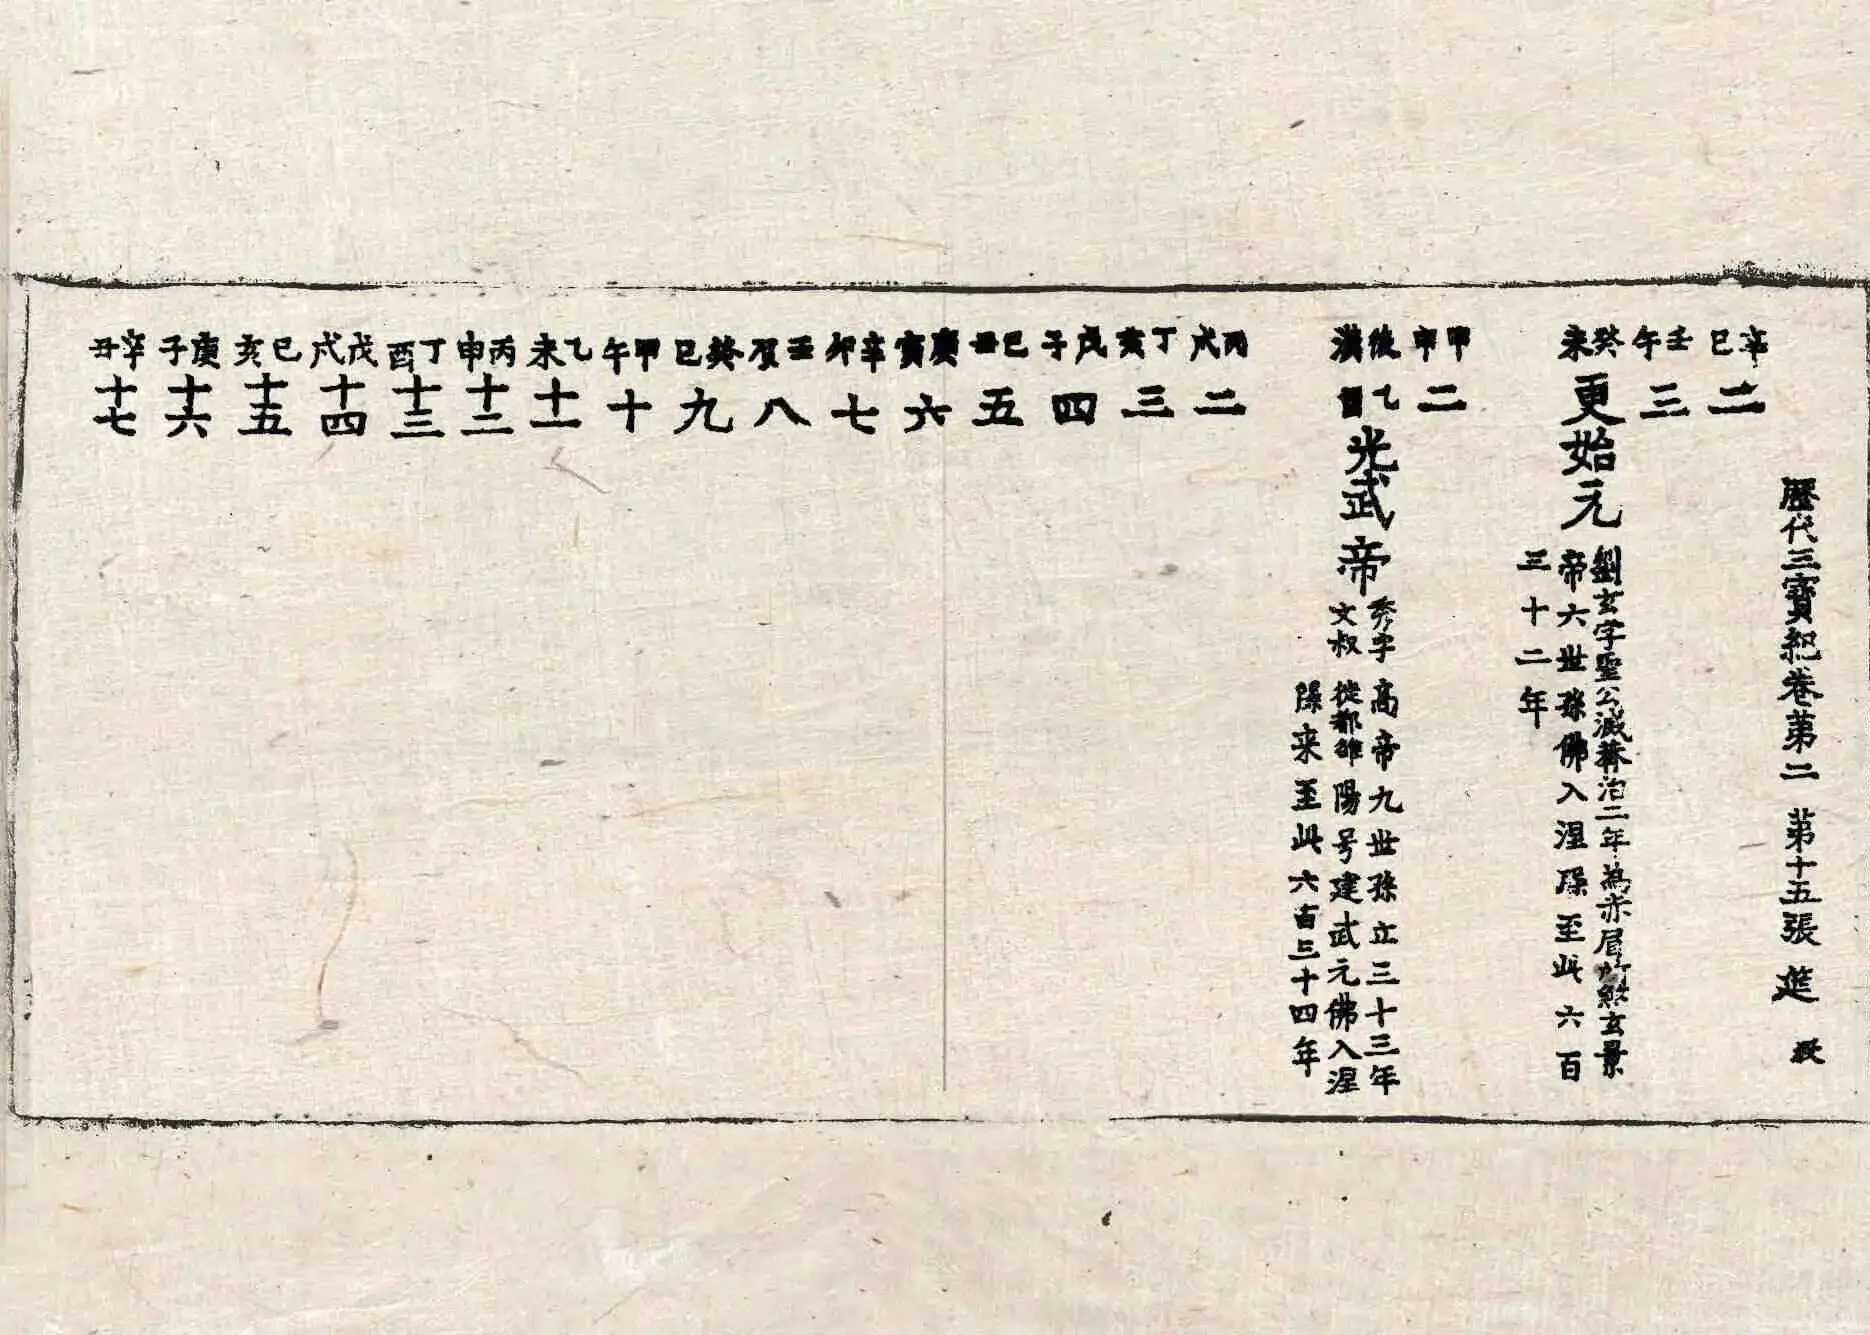 歷代三寶紀卷第二 第十五張
辛巳 二
壬午 三
癸未 更始元
劉玄字聖公滅莽治二年為赤眉所煞玄景
帝六世孫佛入涅槃至此六百
三十二年
甲申 二
後漢 乙酉 光武帝
秀字
文叔
高帝九世孫立三十三年
徙都雒陽号建武元佛入涅
槃来至此六百三十四年
丙戌 二
丁亥 三
戊子 四
己丑 五
庚寅 六
辛卯 七
壬辰 八
癸巳 九
甲午 十
乙未 十一
丙申 十二
丁酉 十三
戊戌 十四
己亥 十五
庚子 十六
辛丑 十七